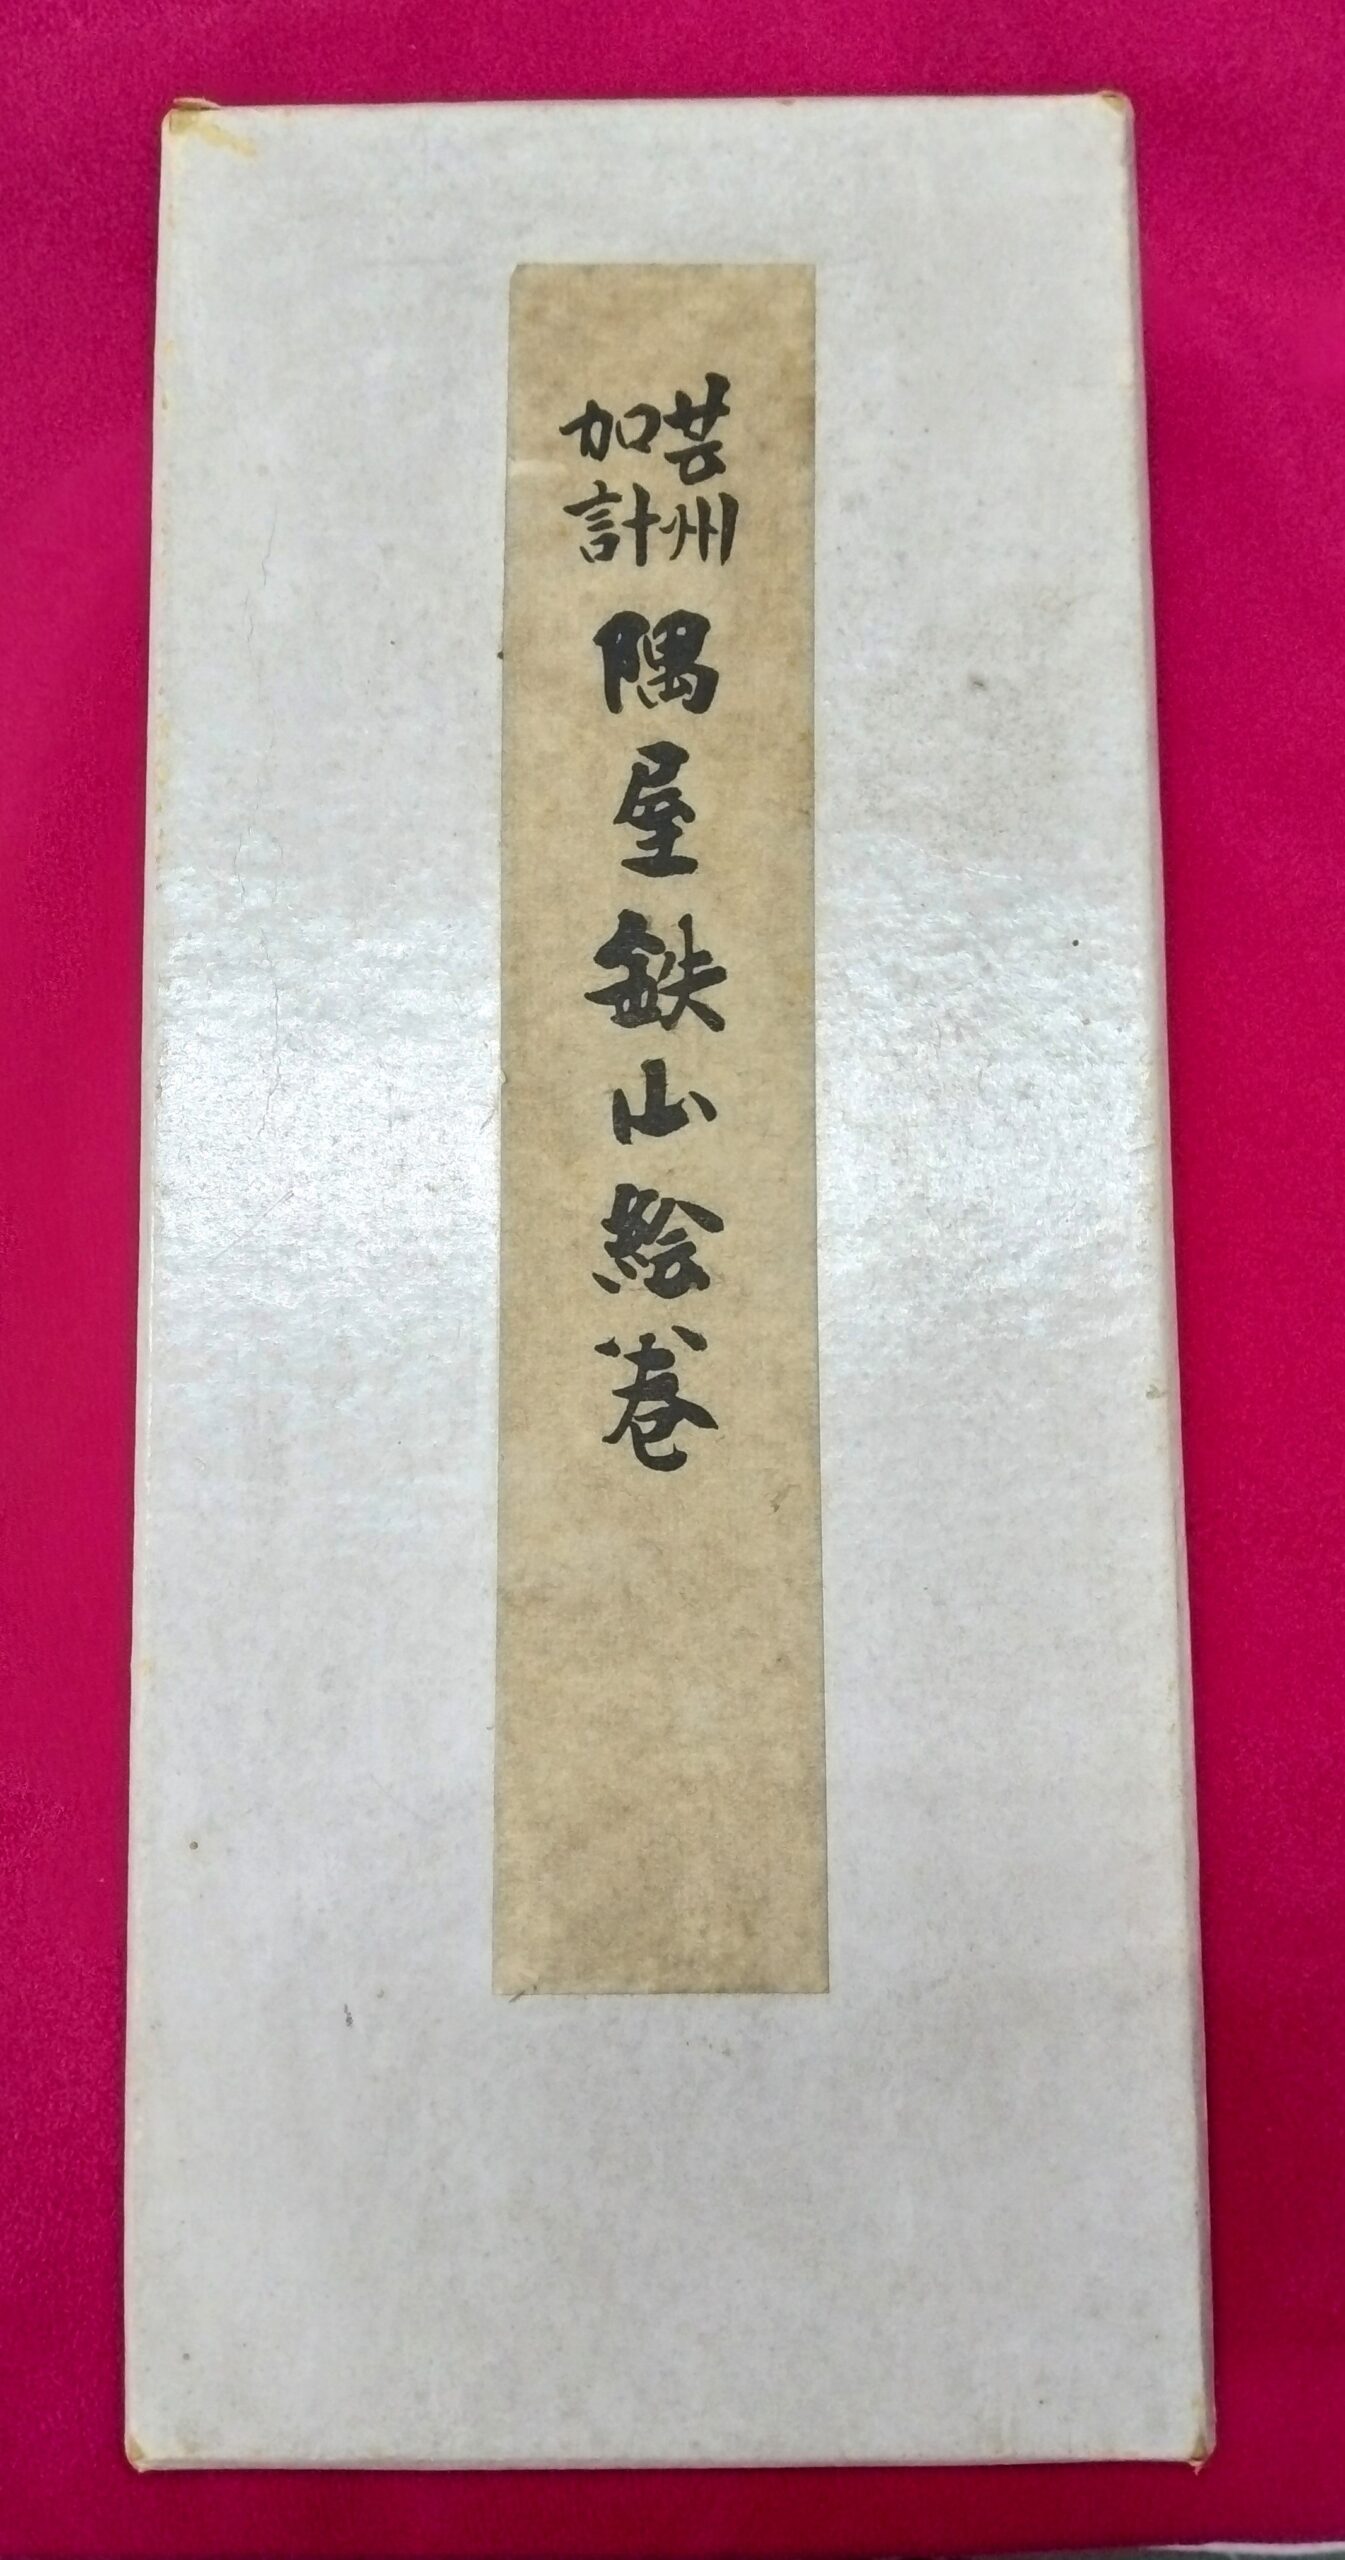 芸州
加計
隅屋鉄山絵巻